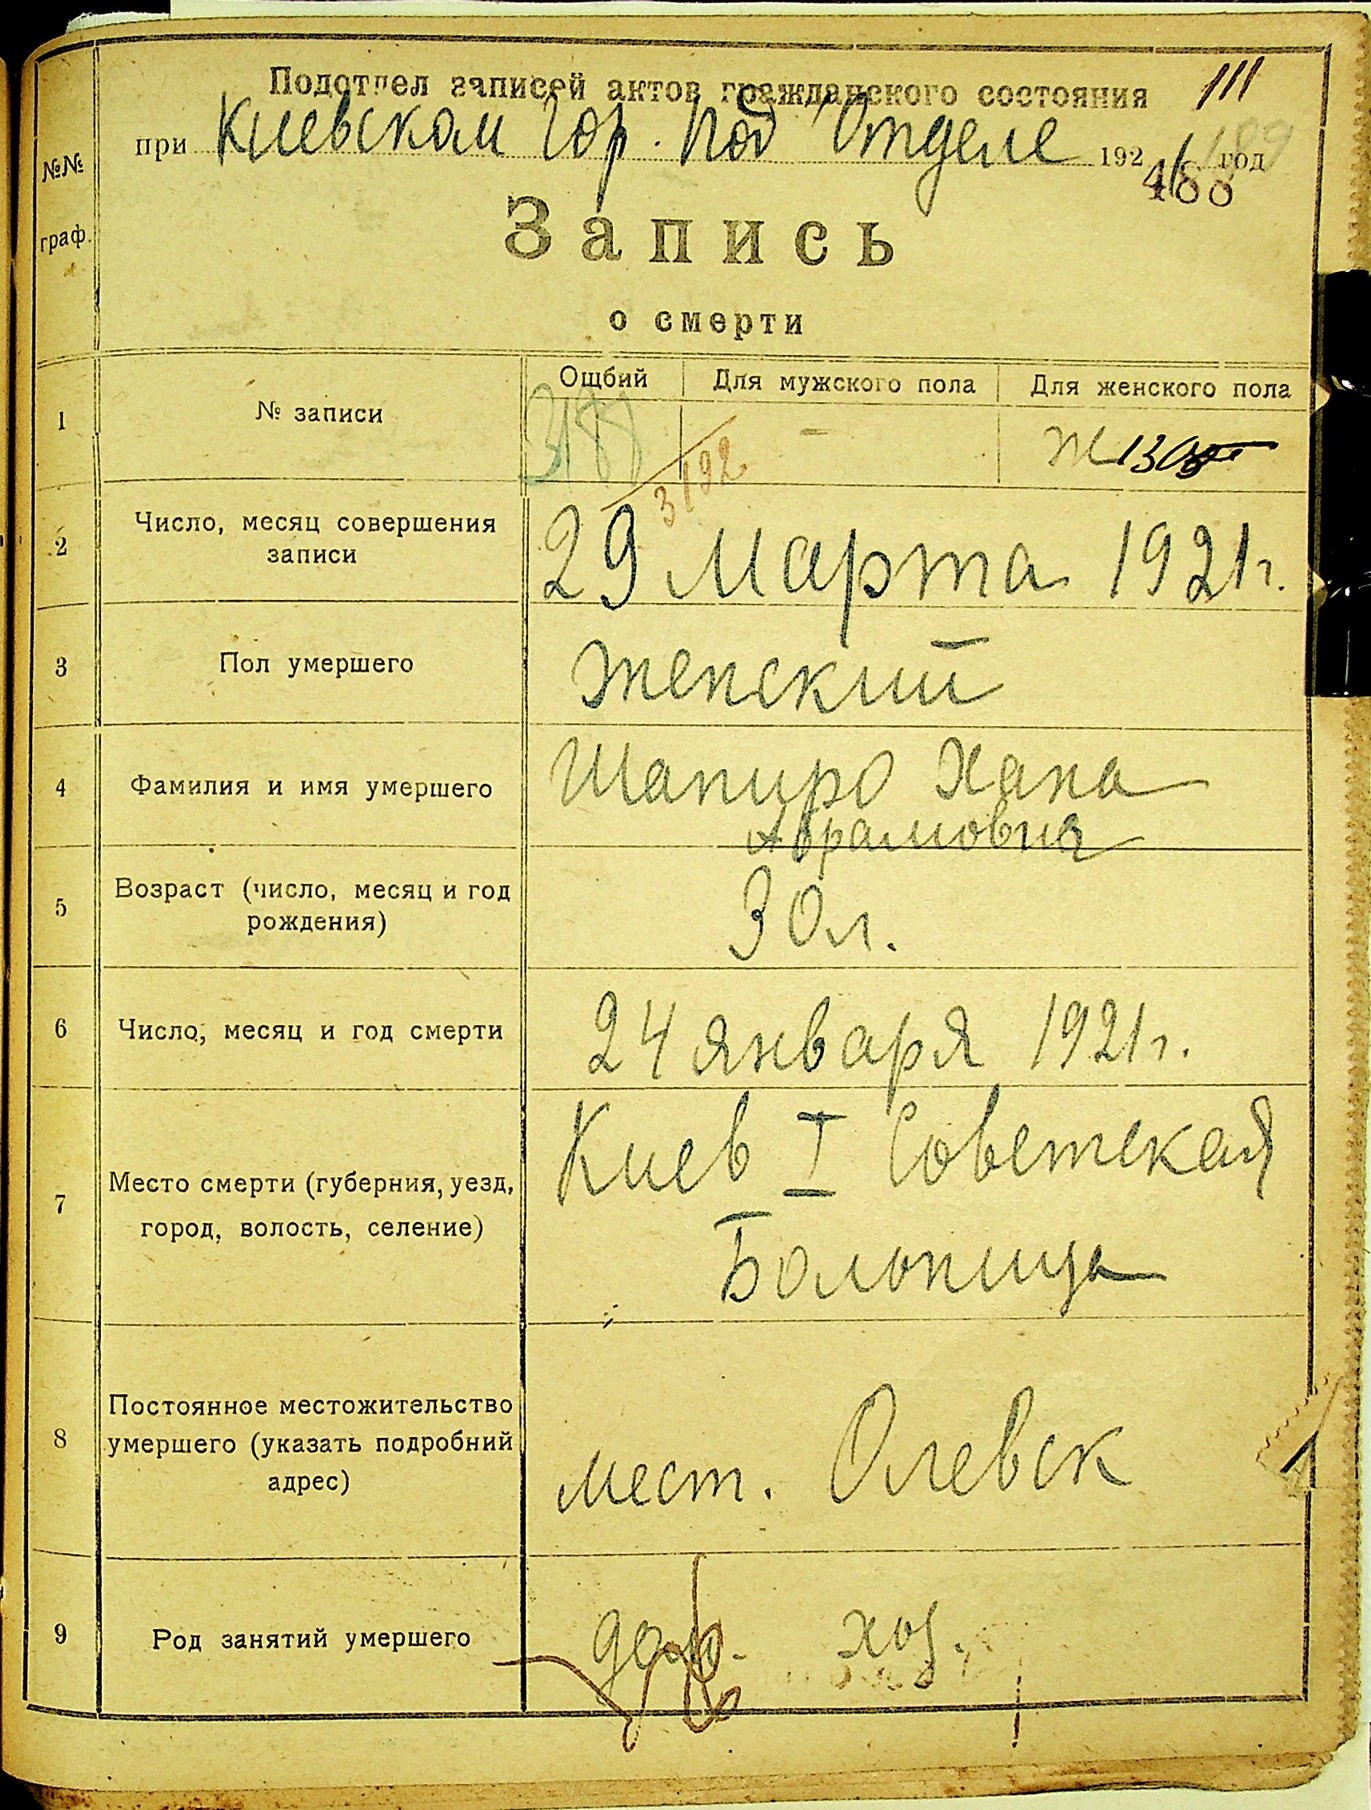 111
Подотдел записей актов гражданского состояния
при Киевском Гор. Под Отделе 1921 год
189
488
№№
граф.
Запись
о смерти
Ощбий Для мужского пола Для женского пола
1 № записи 3188 – Ж
3192
2 Число, месяц совершения
записи
29 Марта 1921 г.
3 Пол умершего Женский
4 Фамилия и имя умершего Шапиро Хана
Абрамовна
5 Возраст (число, месяц и год
рождения)
30 л.
6 Число, месяц и год смерти 24 января 1921 г.
7 Место смерти (губерния, уезд,
город, волость, селение)
Киев I Советская
Больница
8 Постоянное местожительство
умершего (указать подробний
адрес)
мест. Олевск
9 Род занятий умершего дом. хоз.